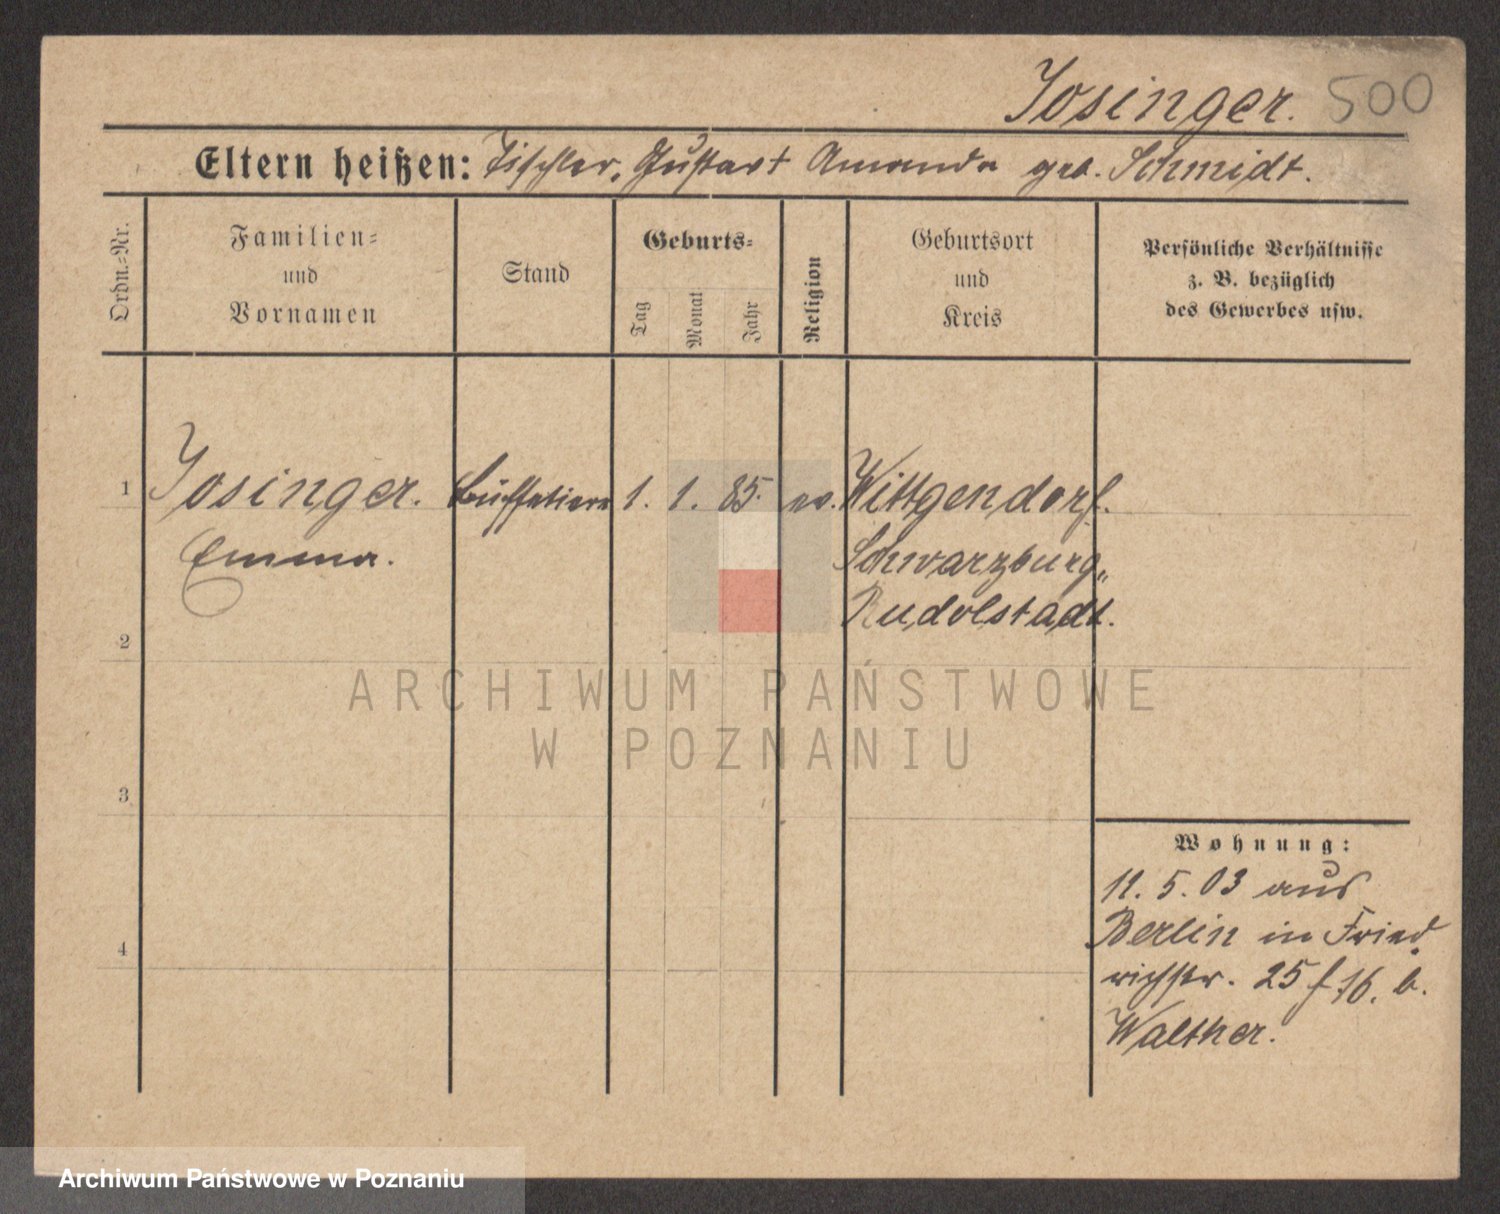 Josinger. 500
Eltern heißen: Tischler, Gustav + Amanda geb. Schmidt.
Ordn.-Nr.
Familien-
und
Vornamen
Stand
Geburts-
Tag
Monat
Jahr
Religion
Geburtsort
und
Kreis
Persönliche Verhältnisse
z. B. bezüglich
des Gewerbes usw.
1 Josinger. Büffetiere 1. 1. 85. ev. Wittgendorf.
Emma. Schwarzburg„
Rudolstadt.
2
3
4
Wohnung:
11. 5. 03 aus
Berlin in Fried
richstr. 25 f 16. b.
Walther.
ARCHIWUM PAŃSTWOWE
W POZNANIU
Archiwum Państwowe w Poznaniu